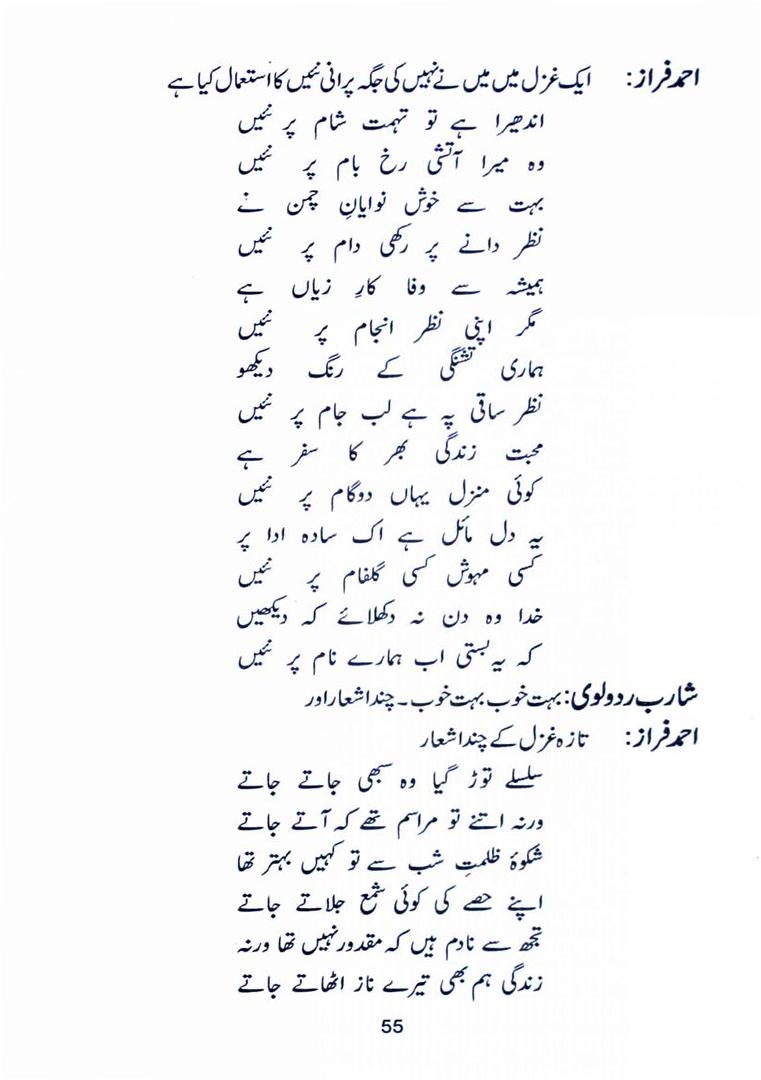 احمد فراز: ایک غزل میں میں نے نہیں کی جگہ پرانی نئیں کا استعمال کیا ہے
اندھیرا ہے تو تہمت شام پر نئیں
وہ میرا آتشی رخ بام پر نئیں
بہت سے خوش نوایانِ چمن نے
نظر دانے پر رکھی دام پر نئیں
ہمیشہ سے وفا کارِ زیاں ہے
مگر اپنی نظر انجام پر نئیں
ہماری تشنگی کے رنگ دیکھو
نظر ساقی پہ ہے لب جام پر نئیں
محبت زندگی بھر کا سفر ہے
کوئی منزل یہاں دوگام پر نئیں
یہ دل مائل ہے اک سادہ ادا پر
کسی مہوش کسی گلفام پر نئیں
خدا وہ دن نہ دکھلائے کہ دیکھیں
کہ یہ بستی اب ہمارے نام پر نئیں
شارب ردولوی: بہت خوب بہت خوب۔ چند اشعار اور
احمد فراز: تازہ غزل کے چند اشعار
سلسلے توڑ گیا وہ سبھی جاتے جاتے
ورنہ اتنے تو مراسم تھے کہ آتے جاتے
شکوۂ ظلمتِ شب سے تو کہیں بہتر تھا
اپنے حصے کی کوئی شمع جلاتے جاتے
تجھ سے نادم ہیں کہ مقدور نہیں تھا ورنہ
زندگی ہم بھی تیرے ناز اٹھاتے جاتے
55